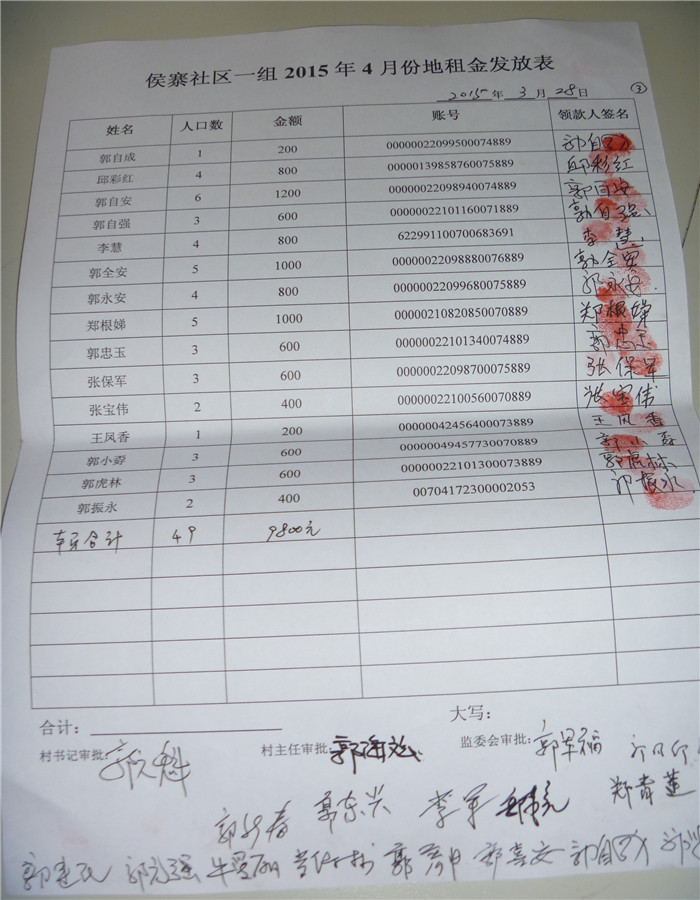 侯寨社区一组 2015 年 4 月份地租金发放表
2015 年 3 月 28 日 ③
姓名 人口数 金额 账号 领款人签名
郭自成 1 200 00000022099500074889
邱彩红 4 800 00000139858760075889 邱彩红
郭自安 6 1200 00000022098940074889 郭自安
郭自强 3 600 00000022101160071889 郭自强
李慧 4 800 622991100700683691 李慧
郭全安 5 1000 00000022098880076889 郭全安
郭永安 4 800 00000022099680075889 郭永安
郑根娣 5 1000 00000210820850070889 郑根娣
郭忠玉 3 600 00000022101340074889 郭忠玉
张保军 3 600 00000022098700075889 张保军
张宝伟 2 400 00000022100560070889 张宝伟
王凤香 1 200 00000042456400073889 王凤香
郭小孬 3 600 00000049457730070889 郭小孬
郭虎林 3 600 00000022101300073889 郭虎林
郭振永 2 400 00704172300002053 郭振永
本页合计 49 9800元
合计： 大写：
村书记审批： 村主任审批： 监委会审批：
李军 郑青莲